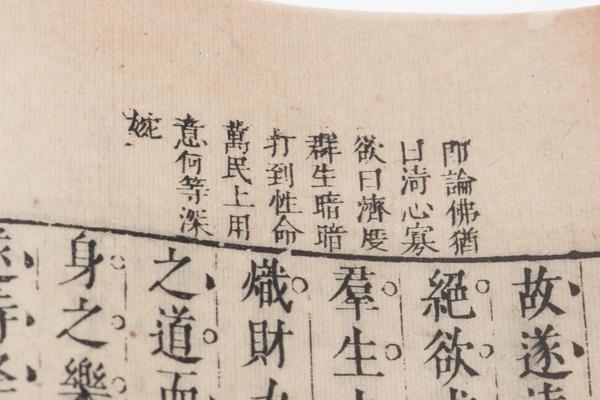 即論佛猶
曰清心寡
欲曰濟度
群生暗暗
打到性命
萬民上用
意何等深
婉
故遂
絕欲
羣生
熾財
之道而
身之樂